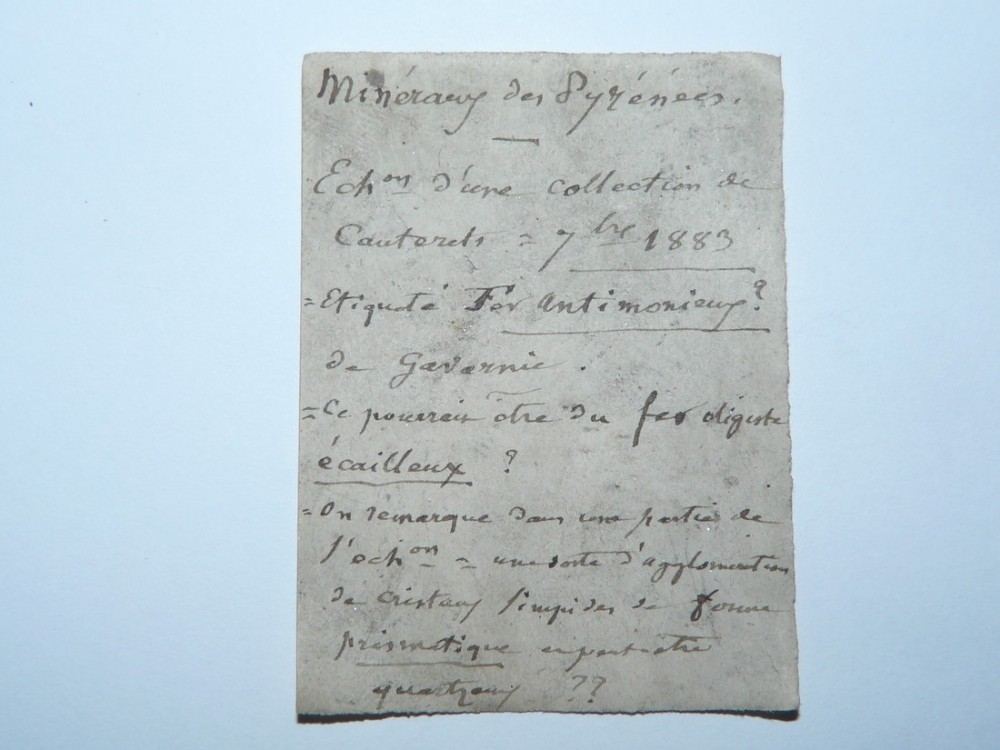 Minéraux des Pyrénées.
Echon d'une collection de
Cauterets = 7bre 1883
= Etiqueté Fer Antimonieux?
de Gavarnie.
= Ce pourrait être du fer oligiste
écailleux ?
= On remarque dans une partie de
l'échon = une sorte d'agglomération
de cristaux limpides de forme
prismatique peut-être
quartzeux ??